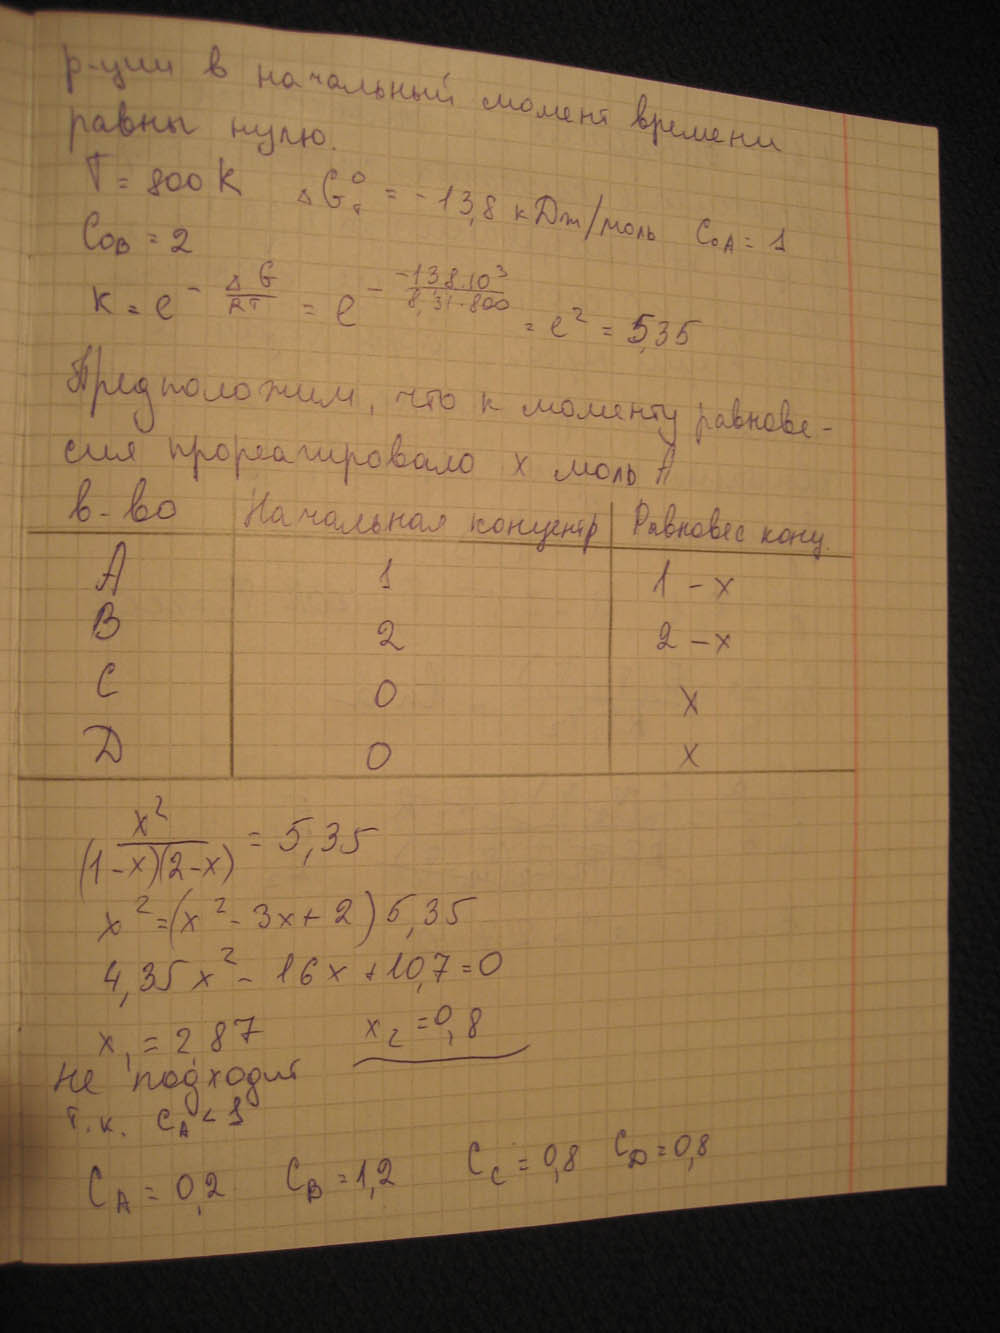 р-ции в начальный момент времени
равны нулю.
T = 800 K ΔG°т = -13,8 кДж/моль C₀A = 1
C₀B = 2
K = e^(-ΔG/RT) = e^(-(-13,8·10³)/(8,31·800)) = e² = 5,35
Предположим, что к моменту равнове-
сия прореагировало x моль A
в-во Начальная концентр Равновес конц.
A 1 1 - x
B 2 2 - x
C 0 x
D 0 x
x²/((1-x)(2-x)) = 5,35
x² = (x² - 3x + 2) 5,35
4,35x² - 16x + 10,7 = 0
x₁ = 2,87 x₂ = 0,8
не подходит
т.к. C_A < 1
C_A = 0,2 C_B = 1,2 C_C = 0,8 C_D = 0,8